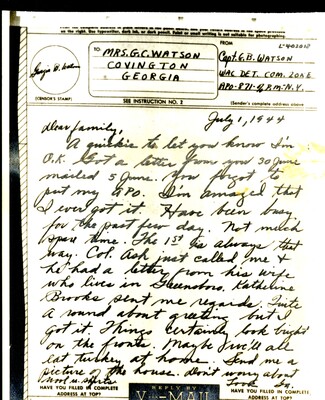 on the right. Use typewriter, dark ink, or dark pencil. Faint or small writing is not suitable for photographing.
TO
MRS. G.C. WATSON
COVINGTON
GEORGIA
FROM
L-402010
Capt. G.B. WATSON
WAC. DET. COM. ZONE
APO-871-% P.M-N.Y.
(CENSOR'S STAMP)
SEE INSTRUCTION NO. 2
(Sender's complete address above)
July 1, 1944
Dear family,
A quickie to let you know I'm
O.K. Got a letter from you 30 June
mailed 5 June. You forgot to
put my APO. I'm amazed that
I ever got it. Have been busy
for the past few day. Not much
spare time. The 1st is always that
way. Col. Ask just called me &
he had a letter from his wife
who lives in Greensboro. Katherine
Brooks sent me regards. Quite
a round about greeting but I
got it. Things certainly look bright
on the fronts. Maybe we'll all
eat turkey at home. Send me a
picture of the house. Don't worry about
HAVE YOU FILLED IN COMPLETE
ADDRESS AT TOP?
REPLY BY
V···-MAIL
HAVE YOU FILLED IN COMPLETE
ADDRESS AT TOP?